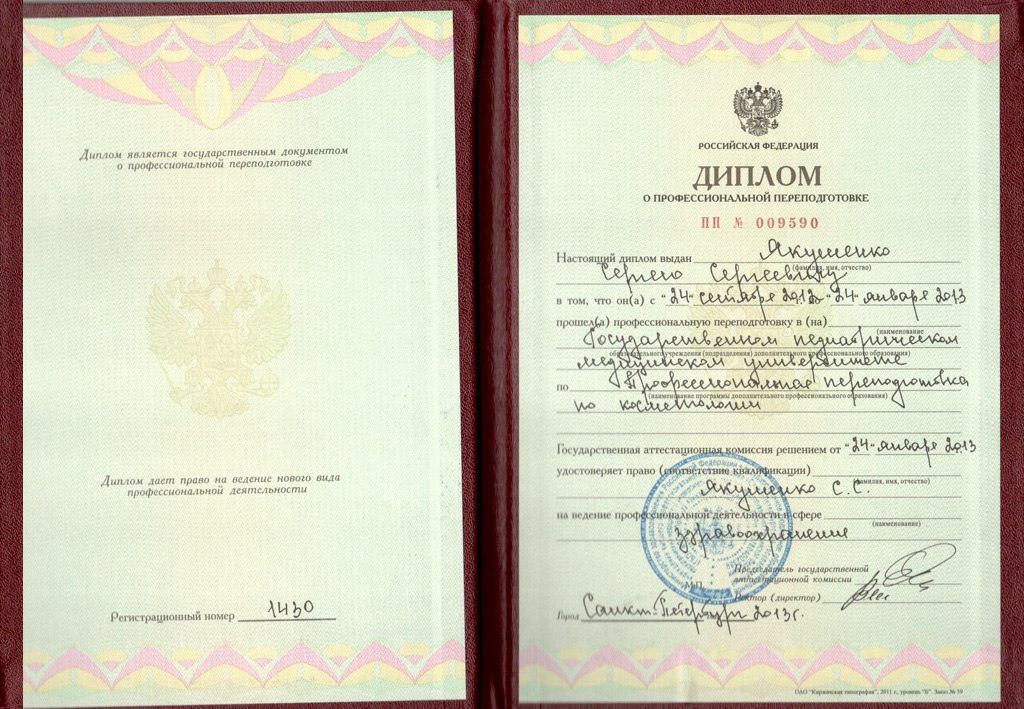 Диплом является государственным документом
о профессиональной переподготовке
Диплом дает право на ведение нового вида
профессиональной деятельности
Регистрационный номер 1430
РОССИЙСКАЯ ФЕДЕРАЦИЯ
ДИПЛОМ
О ПРОФЕССИОНАЛЬНОЙ ПЕРЕПОДГОТОВКЕ
ПП № 009590
Настоящий диплом выдан Якушенко
(фамилия, имя, отчество)
Сергею Сергеевичу
в том, что он(а) с "24" сентября 2012 по "24" января 2013
прошел(а) профессиональную переподготовку в (на)
(наименование
Государственном педиатрическом
образовательного учреждения (подразделения) дополнительного профессионального образования)
медицинском университете
по Профессиональная переподготовка
(наименование программы дополнительного профессионального образования)
по косметологии
Государственная аттестационная комиссия решением от "24" января 2013
удостоверяет право (соответствие квалификации)
(фамилия, имя, отчество)
Якушенко С.С.
на ведение профессиональной деятельности в сфере
(наименование)
здравоохранение
Председатель государственной
аттестационной комиссии
М.П. Ректор (директор)
Город Санкт-Петербург 2013г.
ОАО "Киржачская типография", 2011 г., уровень "Б". Заказ № 59